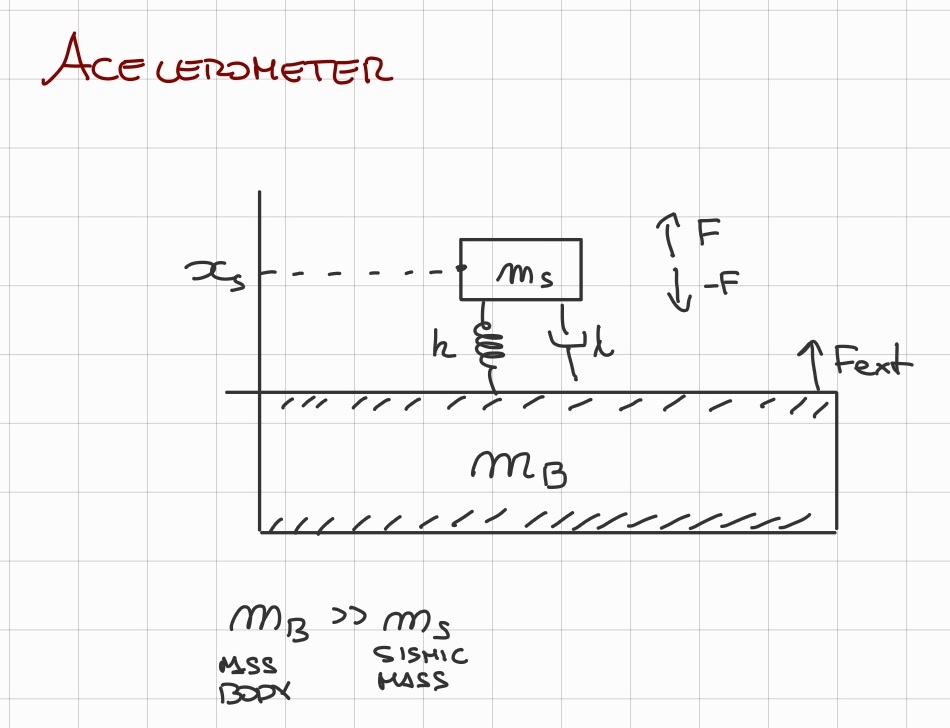 ACELEROMETER
F
xs
ms
-F
k
λ
Fext
mB
mB >> ms
MSS
BODY
SISMIC
MASS